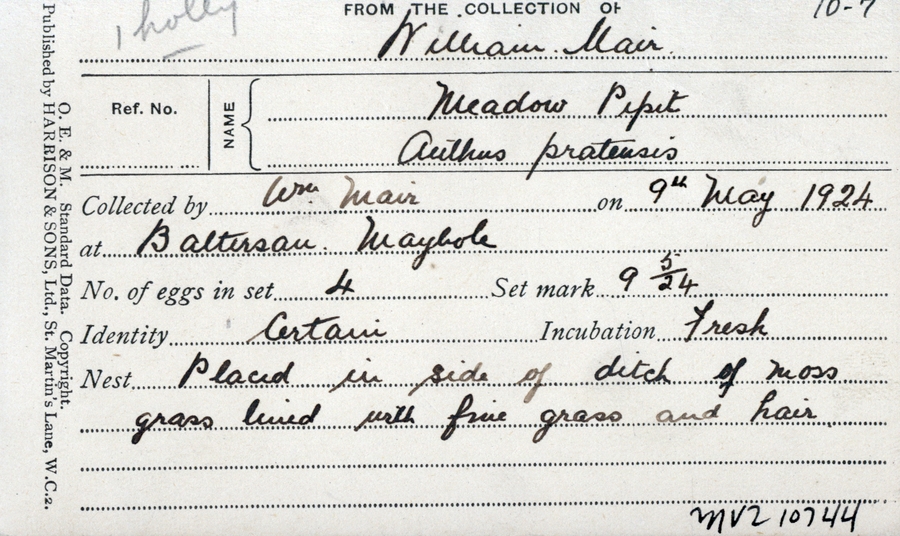 1 holly
FROM THE COLLECTION OF
10-7
William Mair.
Ref. No.
NAME
Meadow Pipit
Anthus pratensis
Collected by Wm Mair on 9th May 1924
at Baltersan. Maybole
No. of eggs in set 4 Set mark 9 5/24
Identity Certain Incubation Fresh
Nest Placed in side of ditch of moss
grass lined with fine grass and hair
MVZ 10744
O. E. & M. Standard Data. Copyright.
Published by HARRISON & SONS, Ltd., St. Martin's Lane, W.C.2.